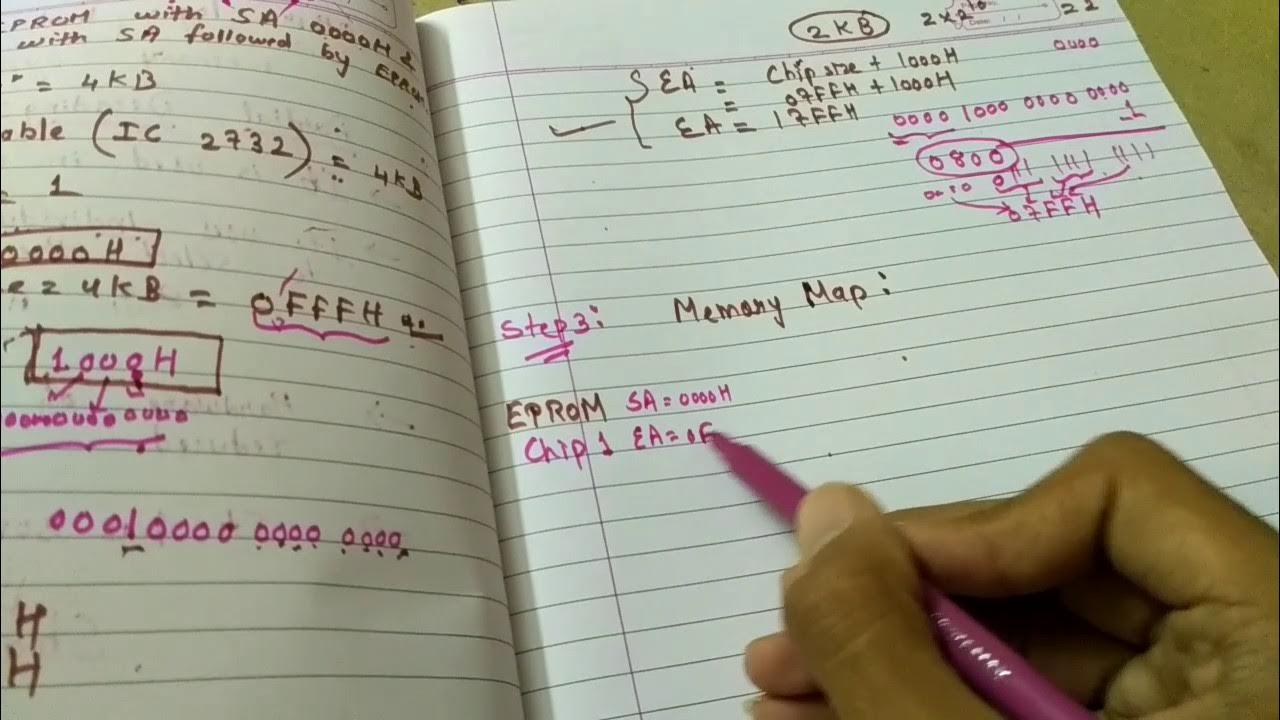 EPROM with SA 0000H &
with SA followed by EPROM
= 4KB
able (IC 2732) = 4KB
= 1
0000H
= 4KB = 0FFFH
1000H
0000 0000 0000
0001 0000 0000 0000
H
H
2KB 2x2^10
EA = Chip size + 1000H
= 07FFH + 1000H
EA = 17FFH
0000
0000 1000 0000 0000
1
0800
0111 1111 1111
07FFH
Step 3: Memory Map:
EPROM SA = 0000H
Chip 1 EA = 0F